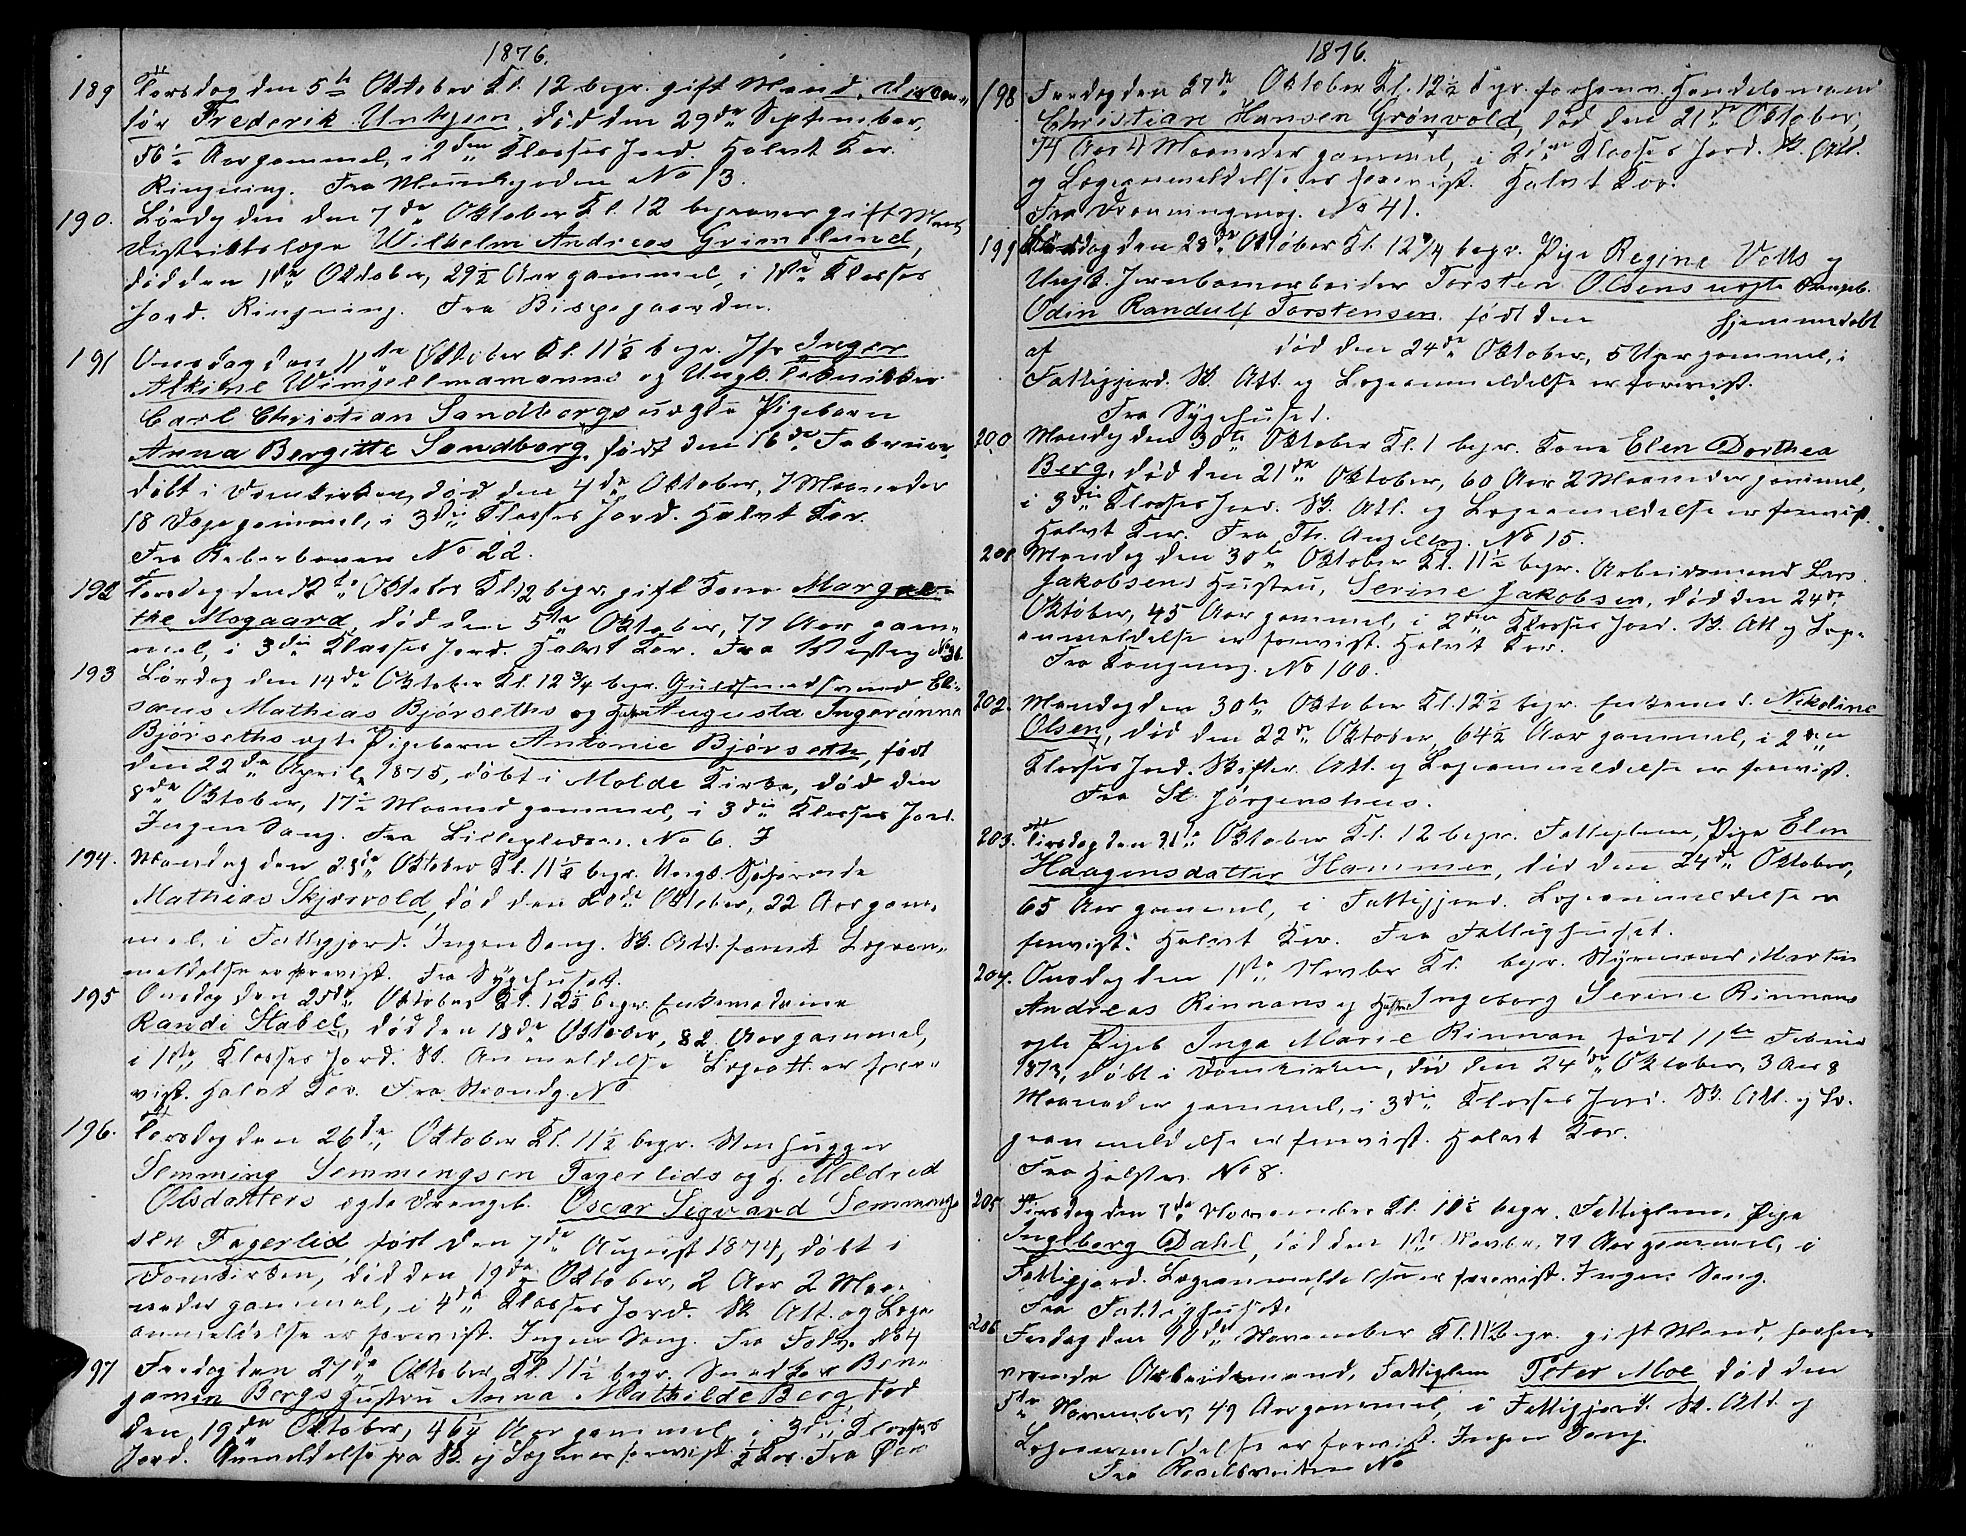 1876.
189 Torsdag den 5te Oktober Kl. 12 begr. gift Mand,
tør Frederik Unhjem, død den 29de September,
56½ Aar gammel, i 2den Klasses Jord. Halvt Kor.
Ringning. Fra Munkegaden No 13.
190. Lørdag den 7de Oktober Kl. 12 begraves gift Mand,
Distriktslæge Wilhelm Andreas Grimelund,
død den 1ste Oktober, 29½ Aar gammel, i 1ste Klasses
Jord. Ringning. Fra Bispegaarden.
191 Onsdag den 11te Oktober Kl. 11½ begr. Jfr Inger
og Ungk.
Carl Christian Sandborgs uægte Pigebarn
Anna Bergitte Sandborg, født den 16de Februar,
døbt i Domkirken, død den 4de Oktober, 7 Maaneder
18 Dage gammel, i 3die Klasses Jord. Halvt Kor.
Fra Reberbanen No 22.
192 Torsdag den 12te Oktober Kl. 12 begr. gift Kone Margre-
the Mogaard, død den 5te Oktober, 77 Aar gam-
mel, i 3die Klasses Jord. Halvt Kor. Fra
193 Lørdag den 14de Oktober Kl. 12¾ begr. Guldsmedsvend El-
Mathias Bjørseths og Hustru Augusta
Bjørseths ægte Pigebarn Antonie Bjørseth, født
den 22de April 1875, døbt i Molde Kirke, død den
8de Oktober, 17½ Maaned gammel, i 3die Klasses Jord.
Ingen Sang. Fra No 6.
194. Mandag den 23de Oktober Kl. 11½ begr. Ungk. Søfarende
Mathias Skjærvold, død den 20de Oktober, 22 Aar gam-
mel, i Fattigjord. Ingen Sang. Sk. Att. samt Lægean-
meldelse er forevist. Fra Sygehuset.
195 Onsdag den 25de Oktober Kl. 12½ begr. Enkemadame
Randi Stabel, død den 18de Oktober, 82 Aar gammel,
i 1ste Klasses Jord. Sk. Anmeldelse Lægeatt. er fore-
vist. Halvt Kor. Fra Strandg. No
196. Torsdag den 26de Oktober Kl. 11½ begr. Stenhugger
Semming Semmengsen Fagerlids og H. Mildred
Olsdatters ægte Drengeb. Oscar Sigvard Semming-
sen Fagerlid, født den 7de August 1874, døbt i
Domkirken, død den 19de Oktober, 2 Aar 2 Maa-
neder gammel, i 4de Klasses Jord. Sk. Att. og Læge-
anmeldelse er forevist. Ingen Sang. Fra No 4
197 Fredag den 27de Oktober Kl. 11½ begr. Snedker Ben-
jamin Bergs Hustru Anna Mathilde Berg, død
den 19de Oktober, 46½ Aar gammel i 3die Klasses
Jord. Anmeldelse fra Sk. og Læge er forevist. ½ Kor. Fra
1876.
198 Fredag den 27de Oktober Kl. 12½ begr. forhenv. Handelsmand
Christian Hansen Grønvold, død den 21de Oktober,
74 Aar 4 Maaneder gammel, i 2den Klasses Jord. Sk. Att.
og Lægeanmeldelse er forevist. Halvt Kor.
Fra Dronningensg. No 41.
199 Lørdag den 28de Oktober Kl. 12¾ begr. Pige Regine Volls og
Ungk. Jernbanearbeider Torsten Olsens uægte Drengeb.
Odin Randulf Torstensen, født den hjemmedøbt
af død den 24de Oktober, 5 Uger gammel, i
Fattigjord. Sk. Att. og Lægeanmeldelse er forevist.
Fra Sygehuset.
200 Mandag den 30te Oktober Kl. 1 begr. Kone Elen Dorthea
Berg, død den 21de Oktober, 60 Aar 2 Maaneder gammel,
i 3die Klasses Jord. Sk. Att. og Lægeanmeldelse er forevist.
Halvt Kor. Fra Th. Angellsg. No 15.
201 Mandag den 30te Oktober Kl. 11½ begr. Arbeidsmand Lars
Jakobsens Hustru, Serine Jakobsen, død den 24de
Oktober, 45 Aar gammel, i 2den Klasses Jord. Sk. Att og Læge-
anmeldelse er forevist. Halvt Kor.
Fra Kongensg. No 100.
202. Mandag den 30te Oktober Kl. 12½ begr. Enkemad. Nikoline
Olsen, død den 22de Oktober, 64½ Aar gammel, i 2den
Klasses Jord. Skifter. Att. og Lægeanmeldelse er forevist.
Fra St. Jørgenshus.
203. Tirsdag den 31te Oktober Kl. 12 begr. Fattiglem, Pige Elen
Haagensdatter Hammer, død den 24de Oktober,
65 Aar gammel, i Fattigjord. Lægeanmeldelse er
forevist. Halvt Kor. Fra Fattighuset.
204. Onsdag den 1ste Novbr Kl. begr. Styrmand Martin
Andreas Rinnans og Hustru Ingeborg Serine Rinnans
ægte Pigeb Inga Marie Rinnan, født 11te Februar
1873, døbt i Domkirken, død den 24de Oktober, 3 Aar 8
Maaneder gammel, i 3die Klasses Jord. Sk. Att. og Læ-
geanmeldelse er forevist. Halvt Kor.
Fra No 8.
205 Tirsdag den 7de November Kl. 10½ begr. Fattiglem, Pige
Ingeborg Dahl, død den 1ste Novbr. 77 Aar gammel, i
Fattigjord. Lægeanmeldelse er forevist. Ingen Sang.
Fra Fattighuset.
206 Fredag den 10de November Kl. 11½ begr. gift Mand, forhen-
værende Arbeidsmand, Fattiglem Peter Moe død den
5te November, 49 Aar gammel, i Fattigjord. Sk. Att. og
Lægeanmeldelse er forevist. Ingen Sang.
Fra No